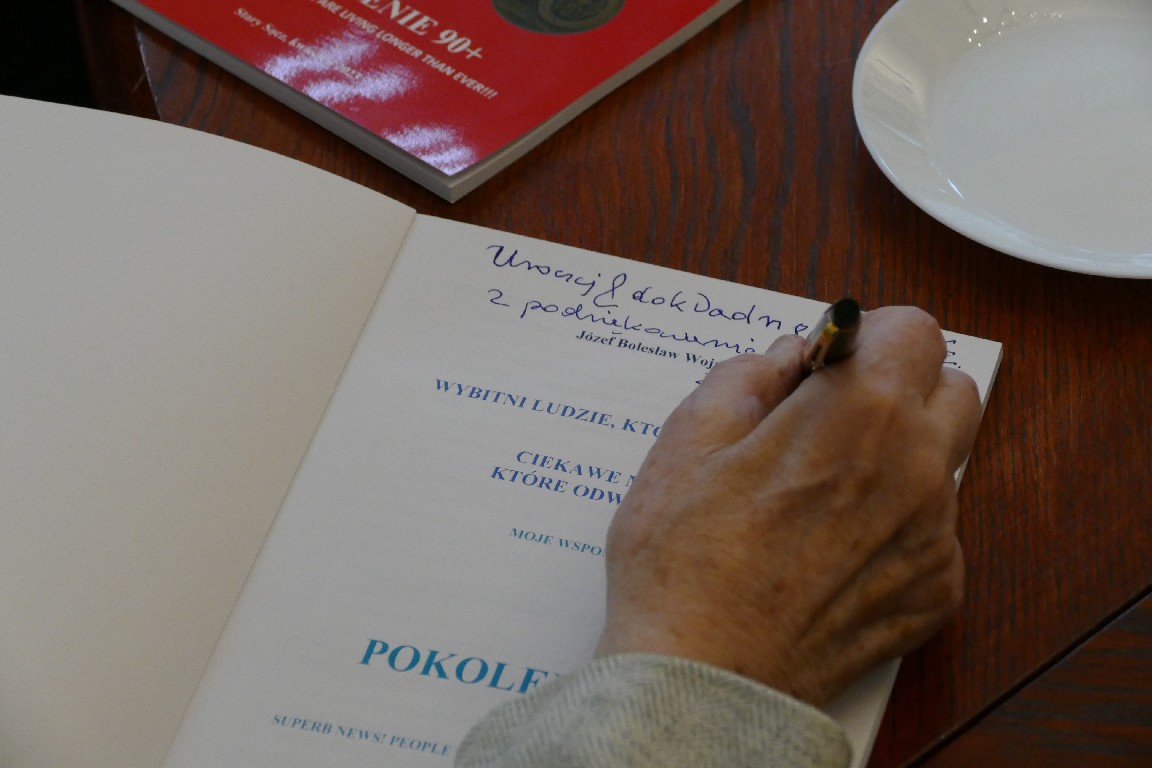 ENIE 90+
ARE LIVING LONGER THAN EVER!!!
Stary Sącz,
Uroczej & dokładnej
z podziękowaniem
Józef Bolesław Woj
WYBITNI LUDZIE, KTÓ
CIEKAWE
KTÓRE ODW
MOJE WSPO
POKOLE
SUPERB NEWS! PEOPLE